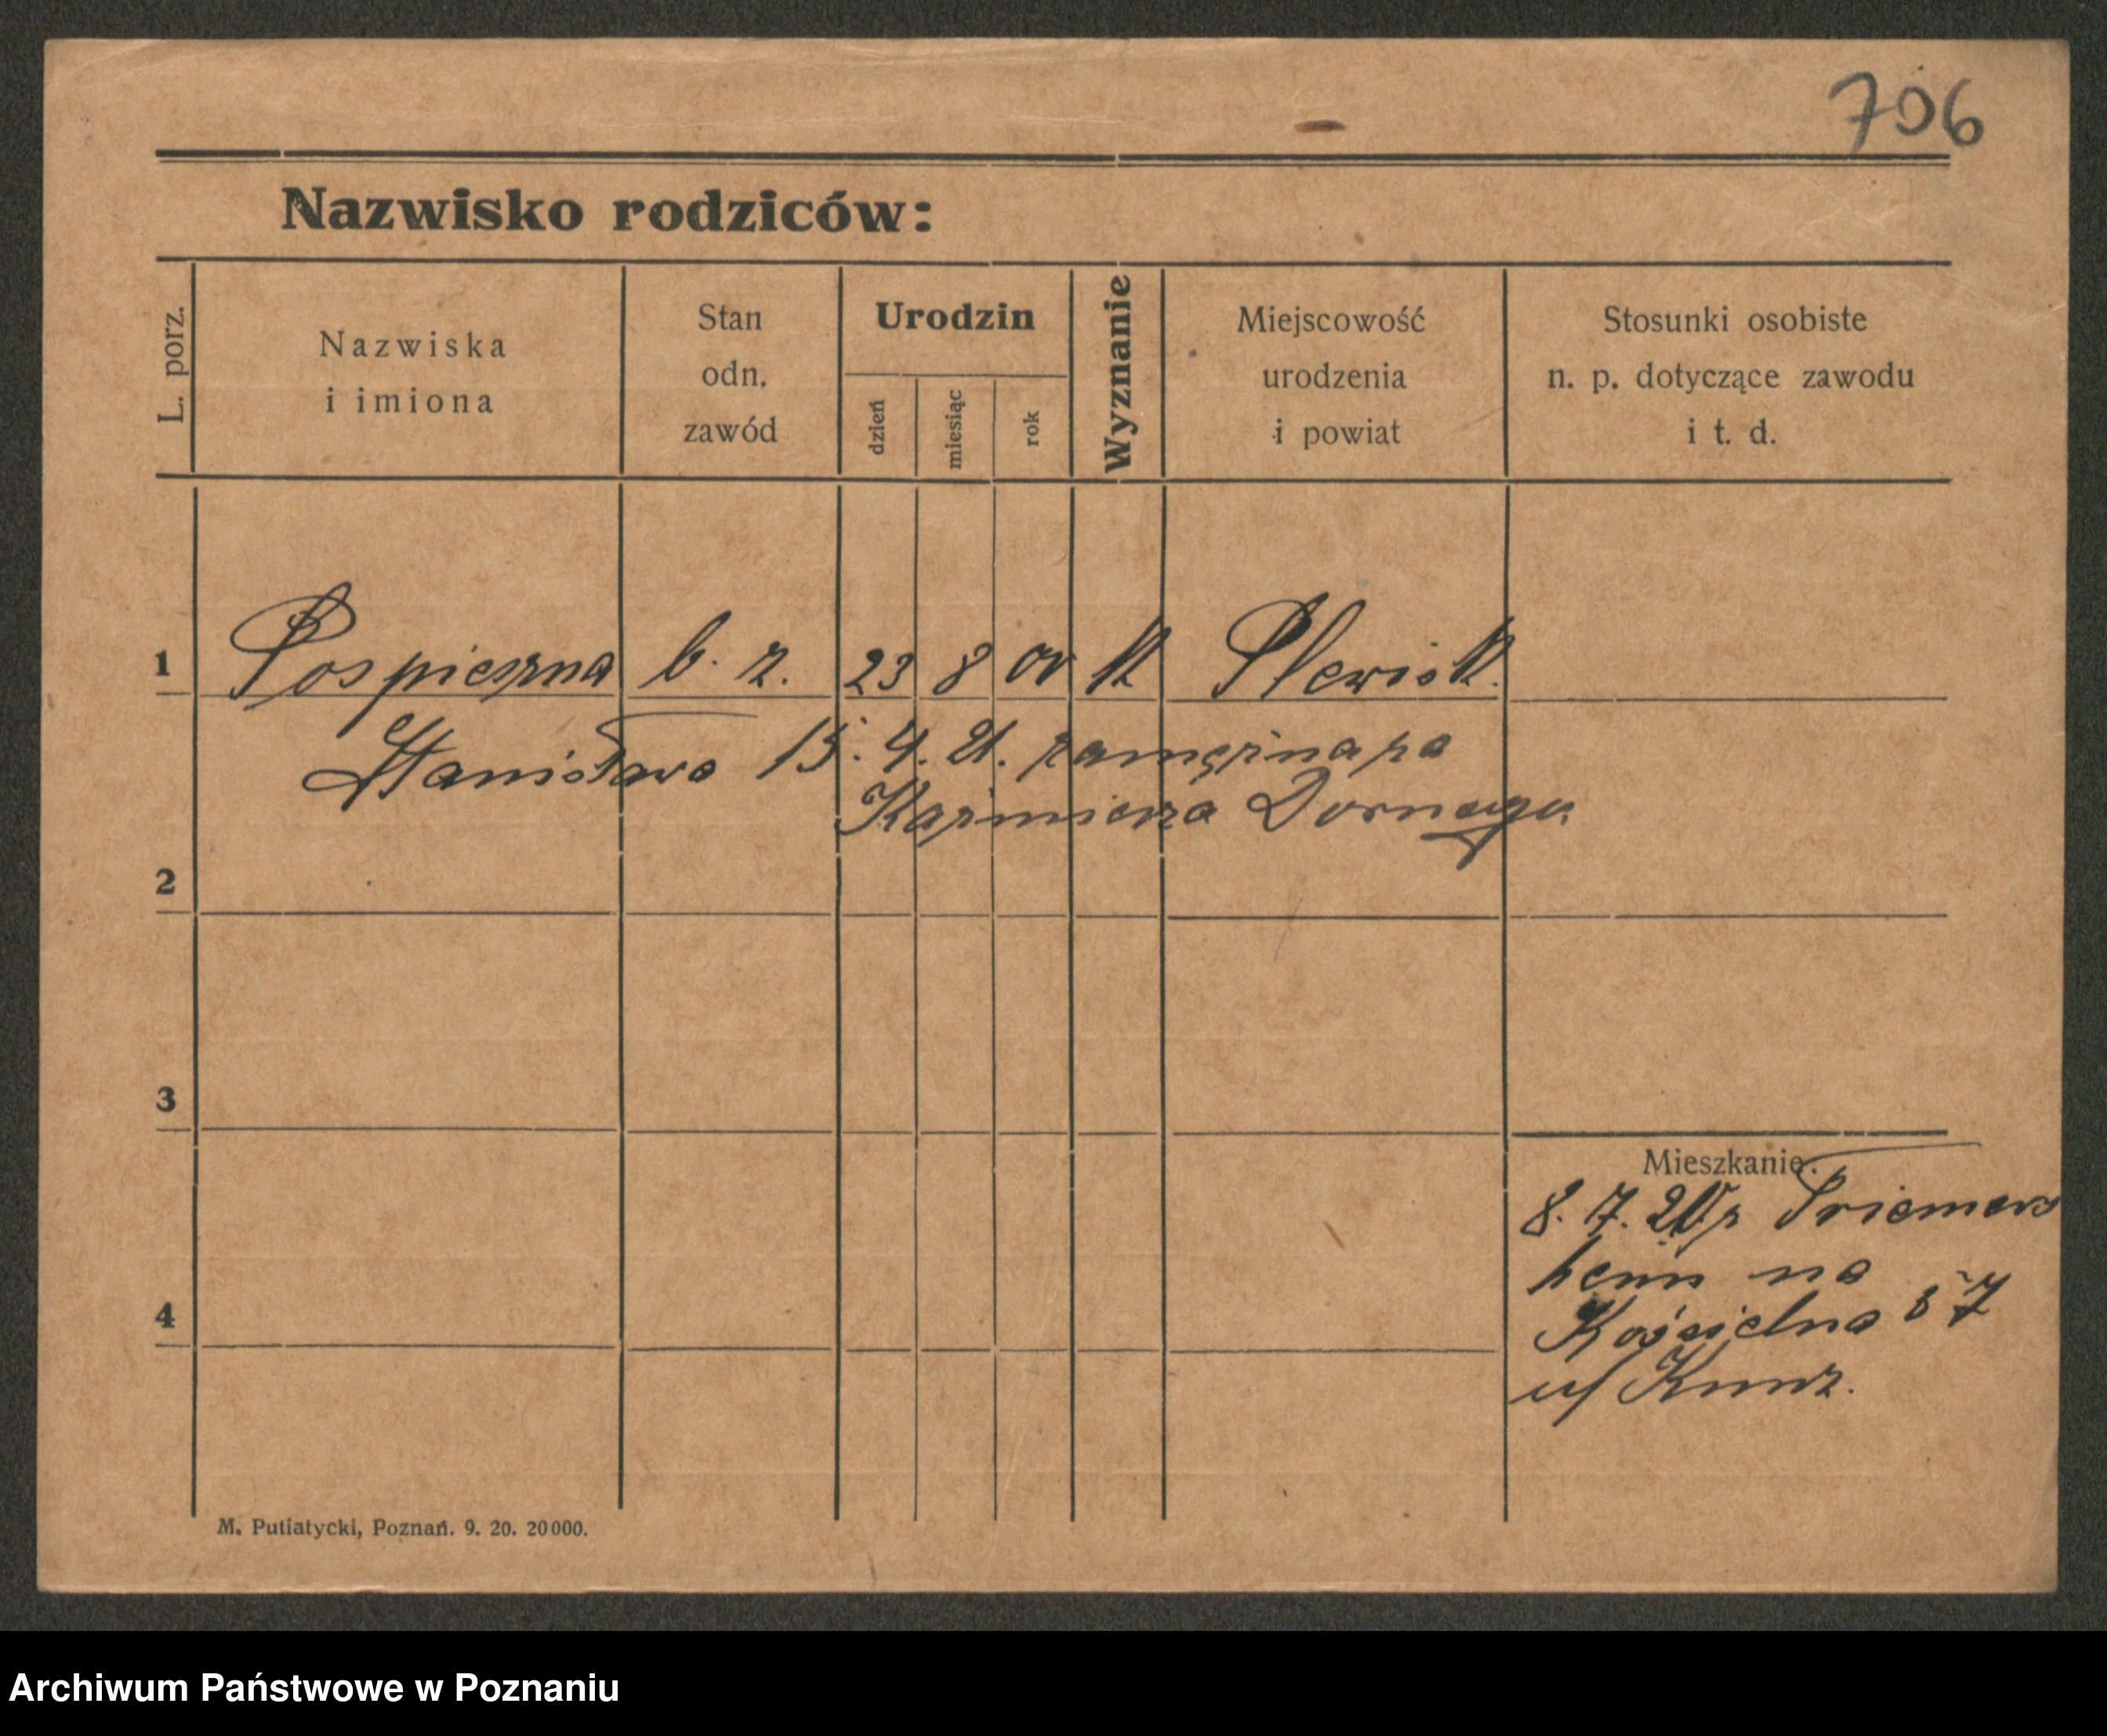 706
Nazwisko rodziców:
L. porz.
Nazwiska
i imiona
Stan
odn.
zawód
Urodzin
dzień
miesiąc
rok
Wyznanie
Miejscowość
urodzenia
i powiat
Stosunki osobiste
n. p. dotyczące zawodu
i t. d.
1 Pospieszna b. z. 23 8 00 k Plewisk.
Stanisława 15. 4. 21. zamężna za
Kaźmierza Dornego.
2
3
4
Mieszkanie.
8. 7. 20 z
na
Kościelna 7
u/ Kunz.
M. Putiatycki, Poznań. 9. 20. 20000.
Archiwum Państwowe w Poznaniu